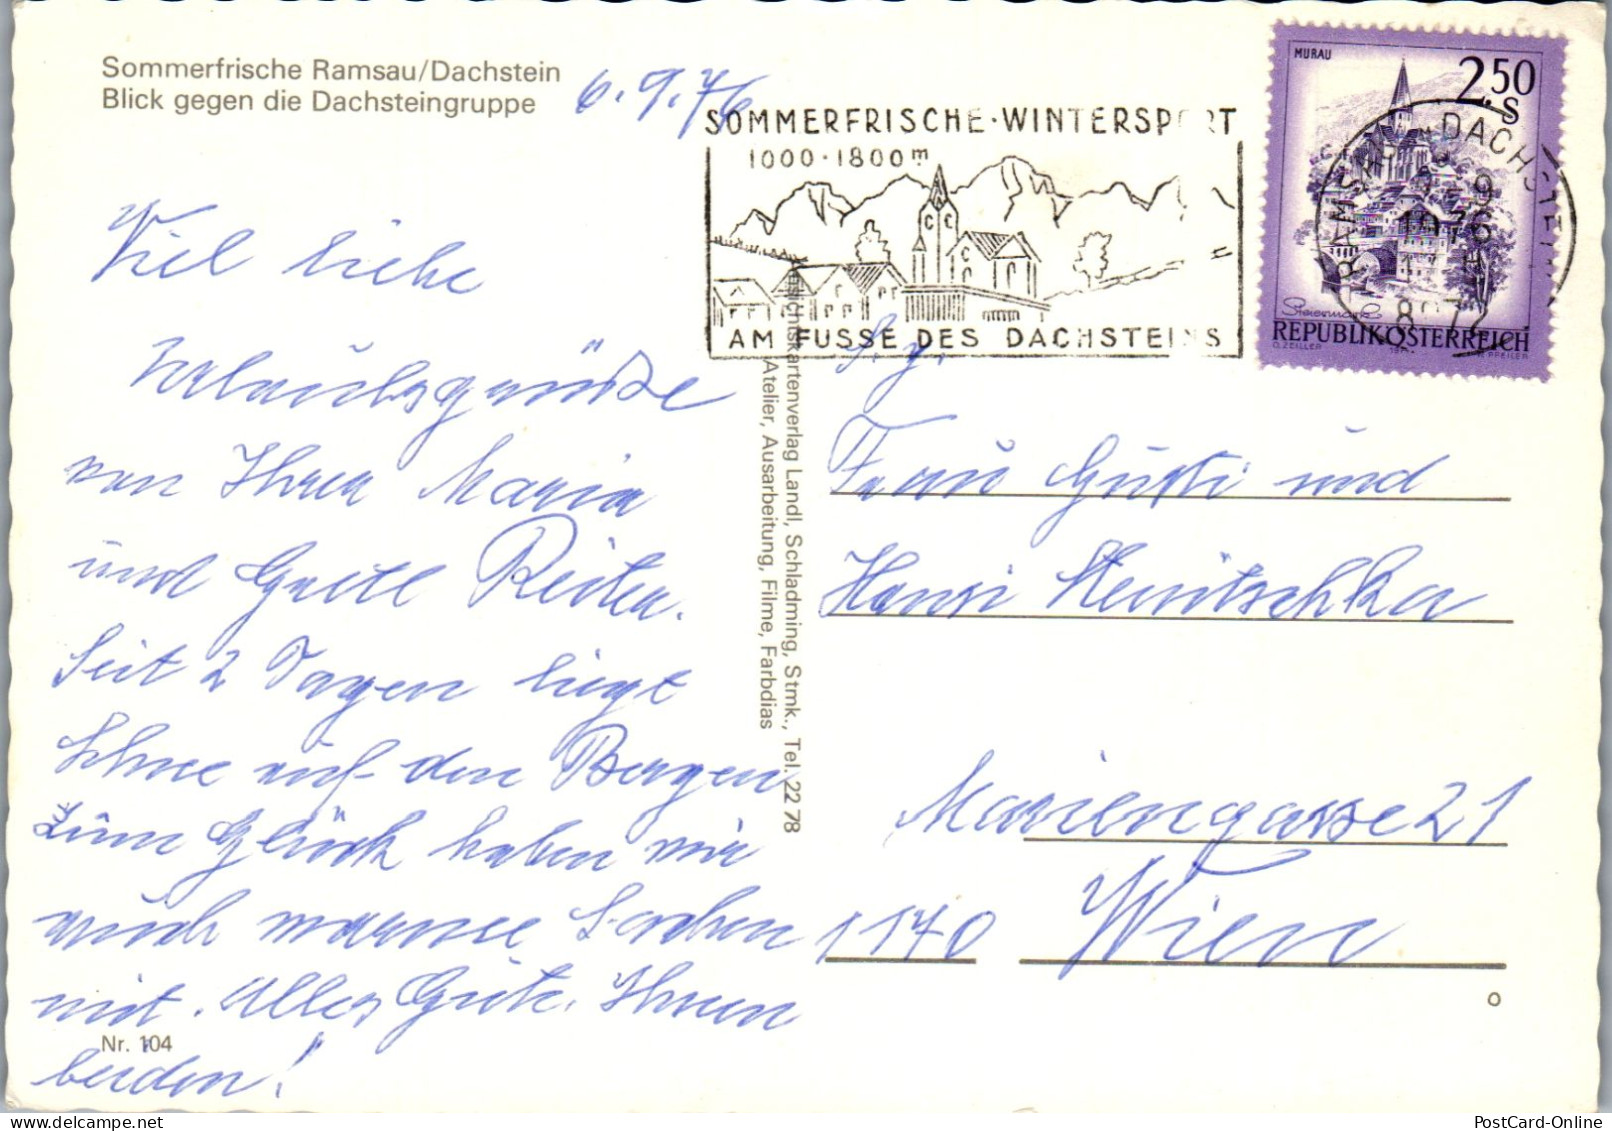 Sommerfrische Ramsau/Dachstein
Blick gegen die Dachsteingruppe
6.9.76
SOMMERFRISCHE·WINTERSPORT
1000·1800m
AM FUSSE DES DACHSTEINS
MURAU
2.50
S
RAMSAU DACHSTEIN
Steiermark
REPUBLIK ÖSTERREICH
O. ZEILLER
Viel liebe
Urlaubsgrüße
von Ihrer Maria
und Gretl Reiter.
Seit 2 Tagen liegt
Schnee auf den Bergen
zum Glück haben wir
auch warme Sachen
mit. Alles Gute Ihnen
beiden!
Nr. 104
Ansichtskartenverlag Landl, Schladming, Stmk., Tel. 22 78
Atelier, Ausarbeitung, Filme, Farbdias
Frau Gusti und
Hansi
Mariengasse 21
1170 Wien
PostCard-Online